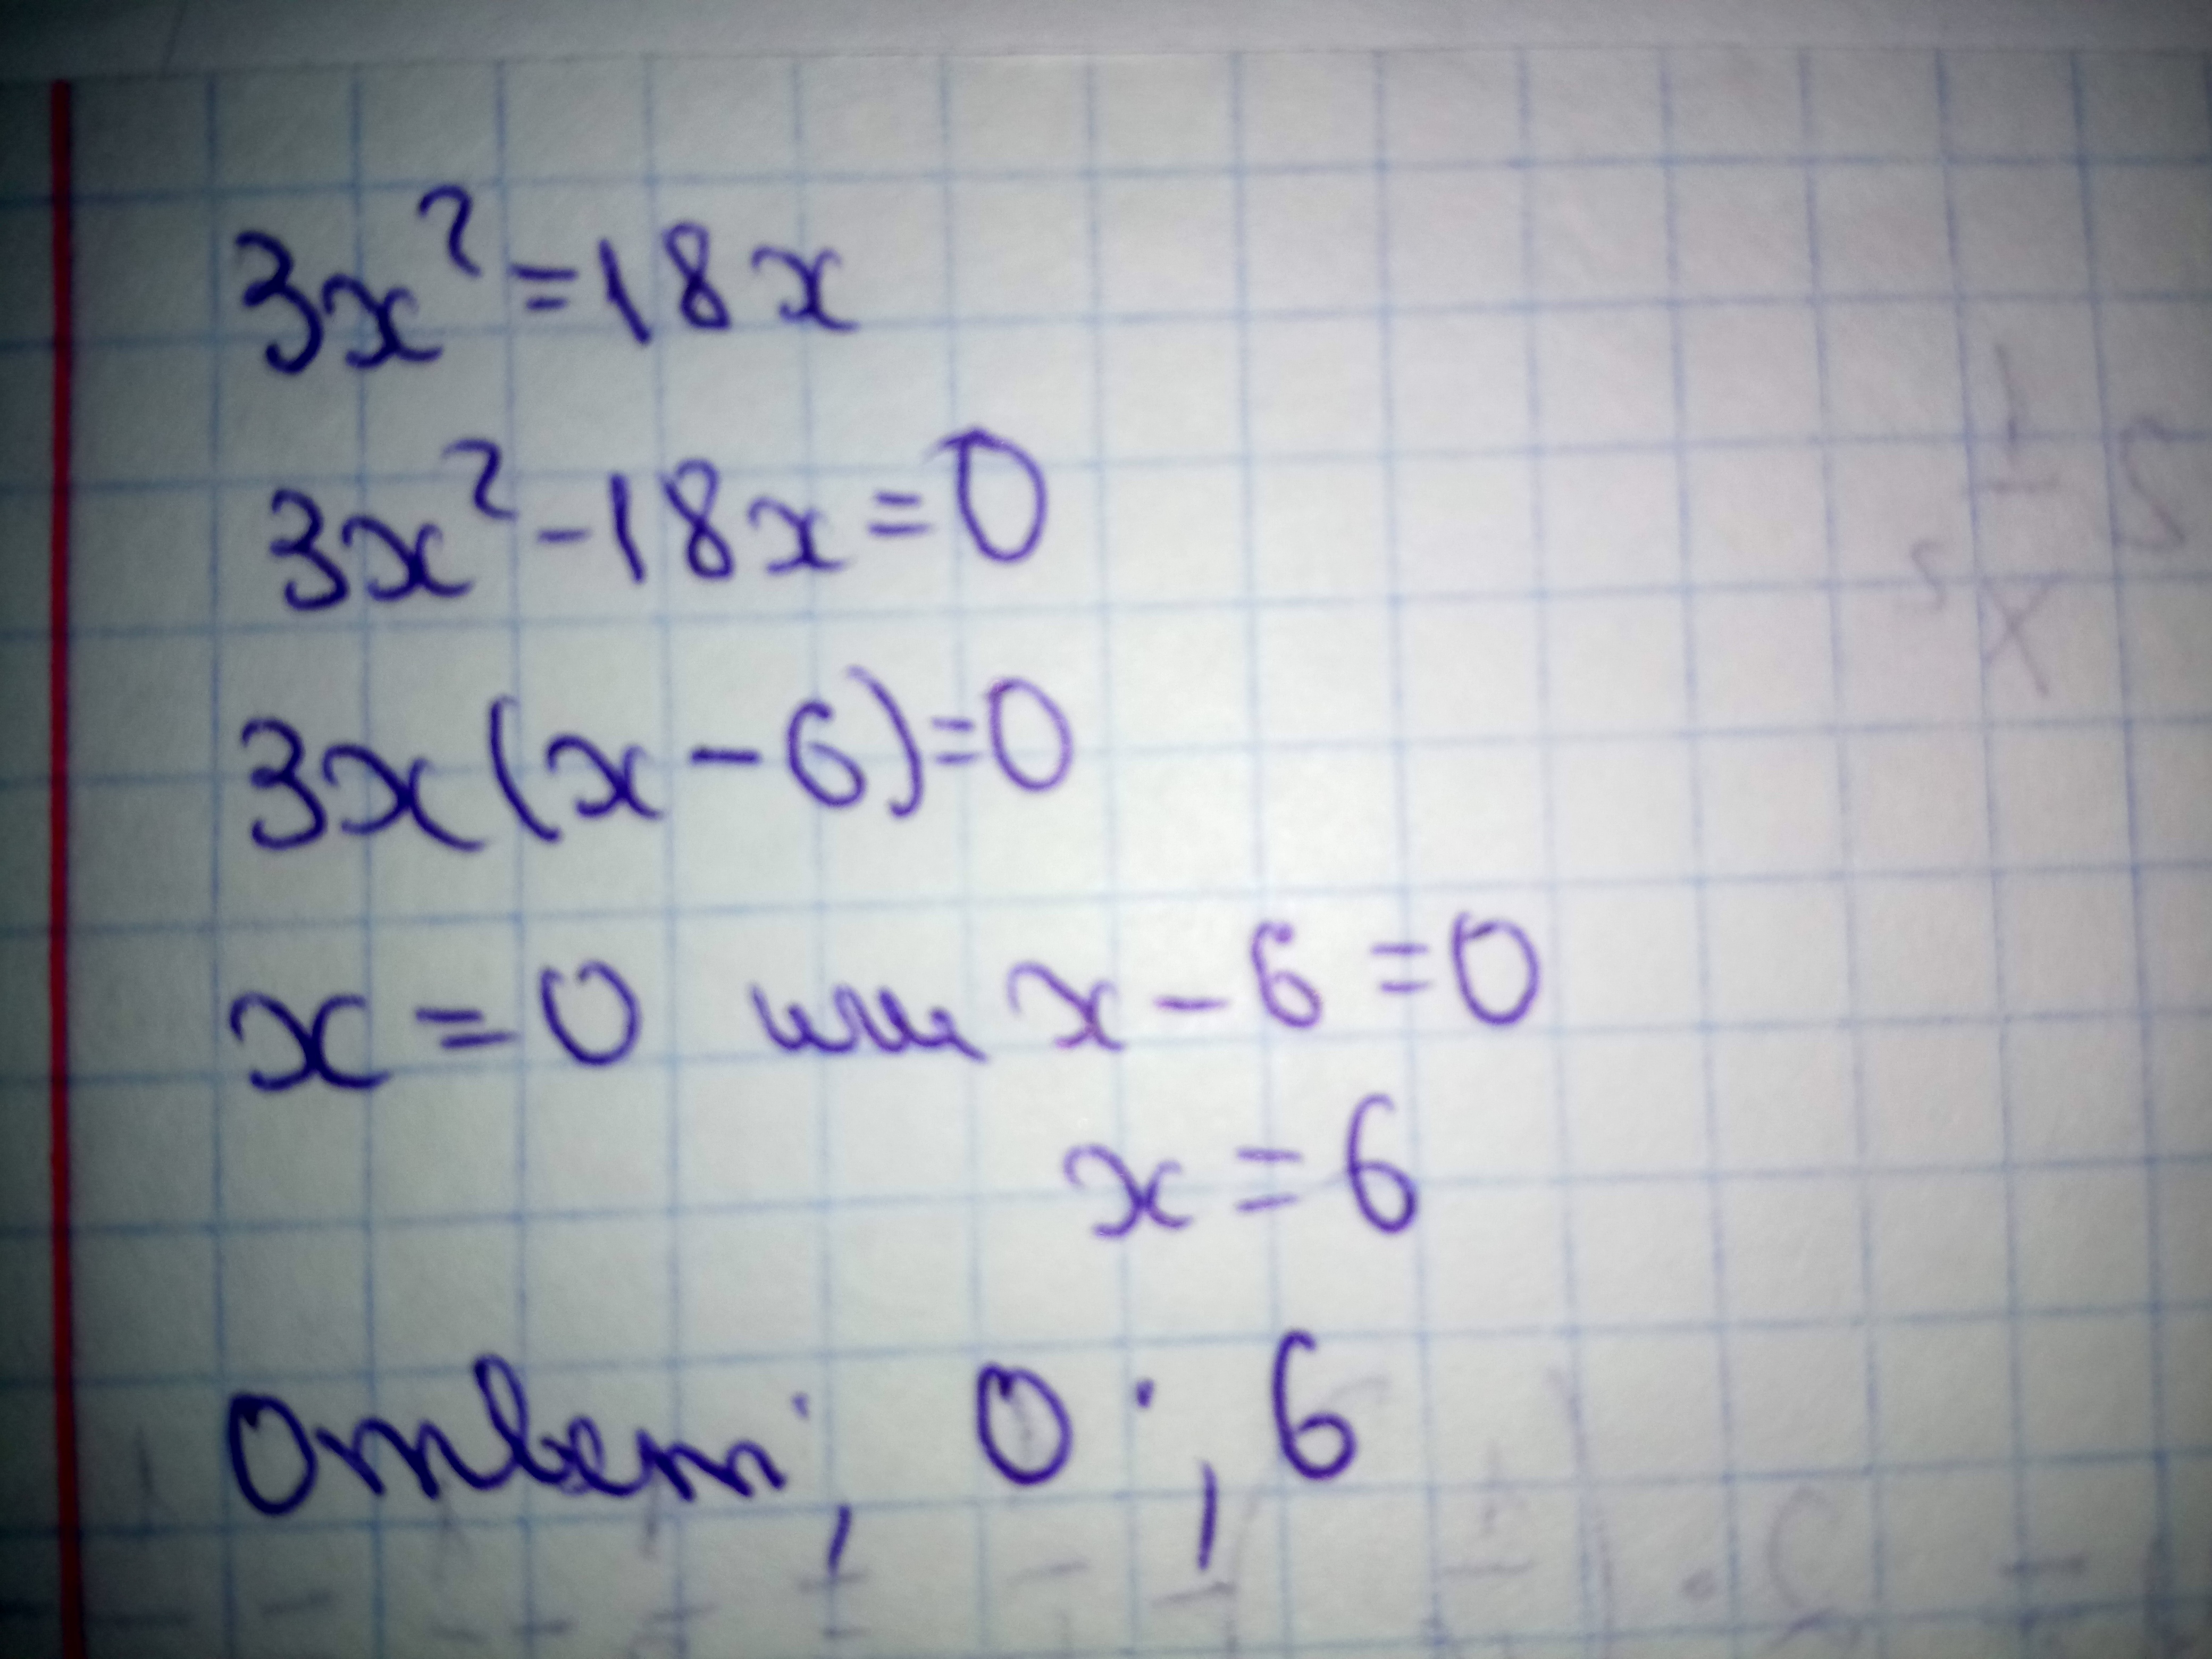 3x² = 18x
3x² - 18x = 0
3x(x - 6) = 0
x = 0 или x - 6 = 0
x = 6
Ответ; 0 ; 6